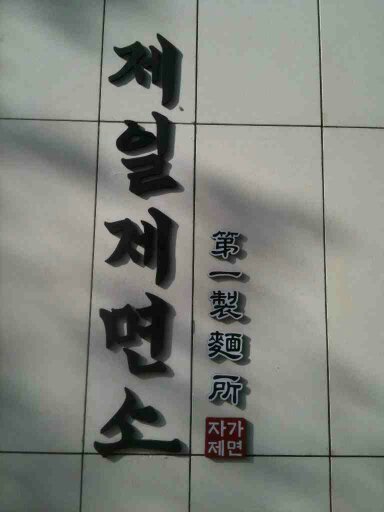 제일제면소
第一製麵所
자가
제면